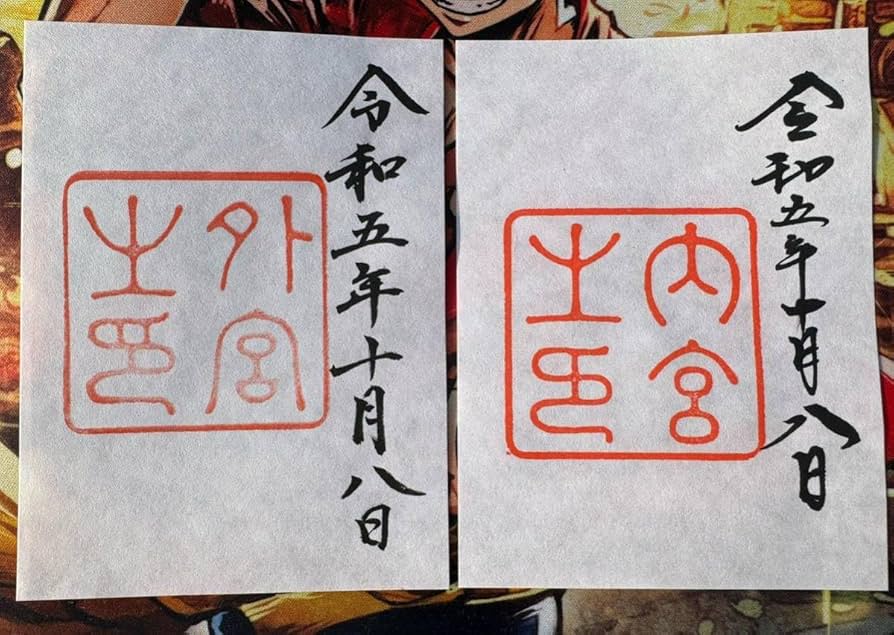 令和五年十月八日
外宮之印
令和五年十月八日
内宮之印